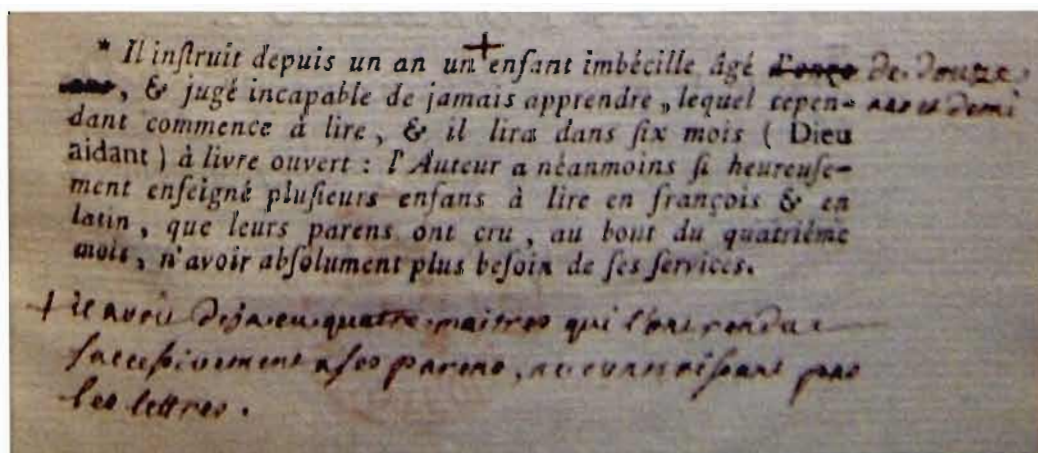 * Il inſtruit depuis un an un + enfant imbécille âgé d'onze de douze
ans, & jugé incapable de jamais apprendre, lequel cepen- ans et demi
dant commence à lire, & il lira dans ſix mois ( Dieu
aidant ) à livre ouvert : l'Auteur a néanmoins ſi heureuſe-
ment enſeigné pluſieurs enfans à lire en françois & en
latin, que leurs parens ont cru, au bout du quatriéme
mois, n'avoir abſolument plus beſoin de ſes ſervices.
+ il avoit deja eu quatre maitres qui l'ont rendu
ſucceſſivement a ſes parens, ne connaiſſant pas
les lettres.